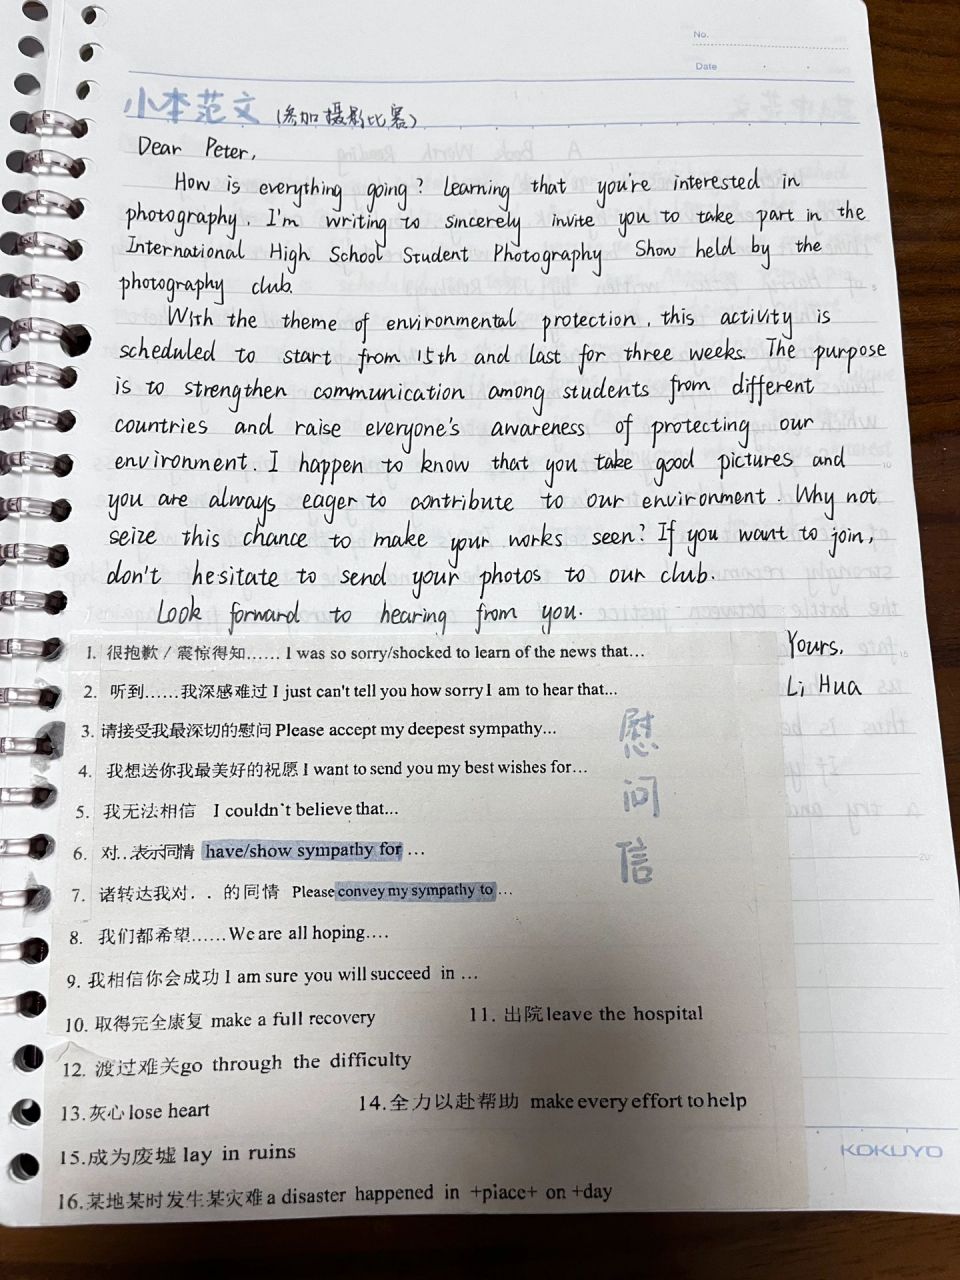 No.
Date
小本范文 (参加摄影比赛)
Dear Peter,
How is everything going? Learning that you're interested in
photography, I'm writing to sincerely invite you to take part in the
International High School Student Photography Show held by the
photography club.
With the theme of environmental protection, this activity is
scheduled to start from 15th and last for three weeks. The purpose
is to strengthen communication among students from different
countries and raise everyone's awareness of protecting our
environment. I happen to know that you take good pictures and
you are always eager to contribute to our environment. Why not
seize this chance to make your works seen? If you want to join,
don't hesitate to send your photos to our club.
Look forward to hearing from you.
Yours,
Li Hua
1. 很抱歉/震惊得知…… I was so sorry/shocked to learn of the news that...
2. 听到……我深感难过 I just can't tell you how sorry I am to hear that...
3. 请接受我最深切的慰问 Please accept my deepest sympathy...
4. 我想送你我最美好的祝愿 I want to send you my best wishes for...
5. 我无法相信 I couldn't believe that...
6. 对…表示同情 have/show sympathy for ...
7. 诸转达我对．．的同情 Please convey my sympathy to ...
8. 我们都希望…… We are all hoping....
9. 我相信你会成功 I am sure you will succeed in ...
10. 取得完全康复 make a full recovery 11. 出院 leave the hospital
12. 渡过难关 go through the difficulty
13. 灰心 lose heart 14. 全力以赴帮助 make every effort to help
15. 成为废墟 lay in ruins
16. 某地某时发生某灾难 a disaster happened in +piace+ on +day
慰问信
KOKUYO